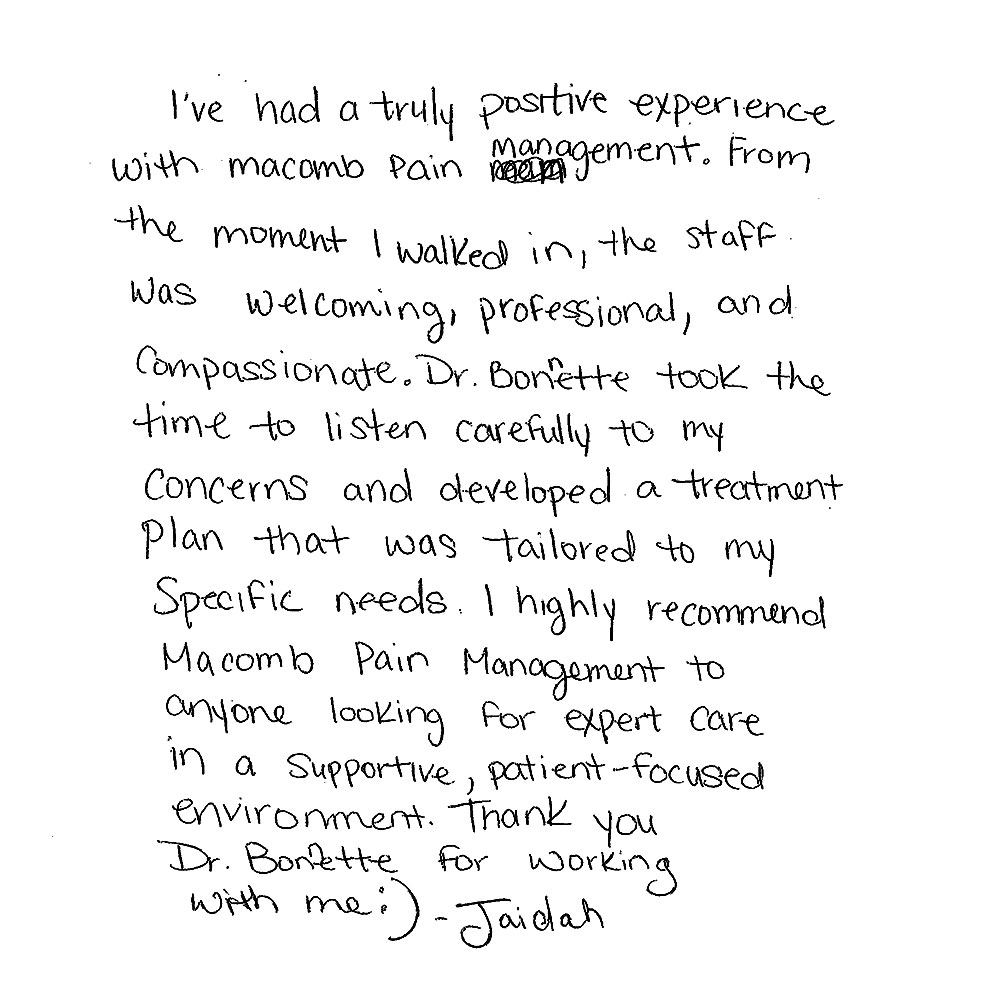 I've had a truly positive experience
with macomb Pain management. From
the moment I walked in, the staff
was welcoming, professional, and
Compassionate. Dr. Bonnette took the
time to listen carefully to my
Concerns and developed a treatment
Plan that was tailored to my
Specific needs. I highly recommend
Macomb Pain Management to
anyone looking for expert care
in a supportive, patient-focused
environment. Thank you
Dr. Bonnette for working
with me :)
-Jaidah